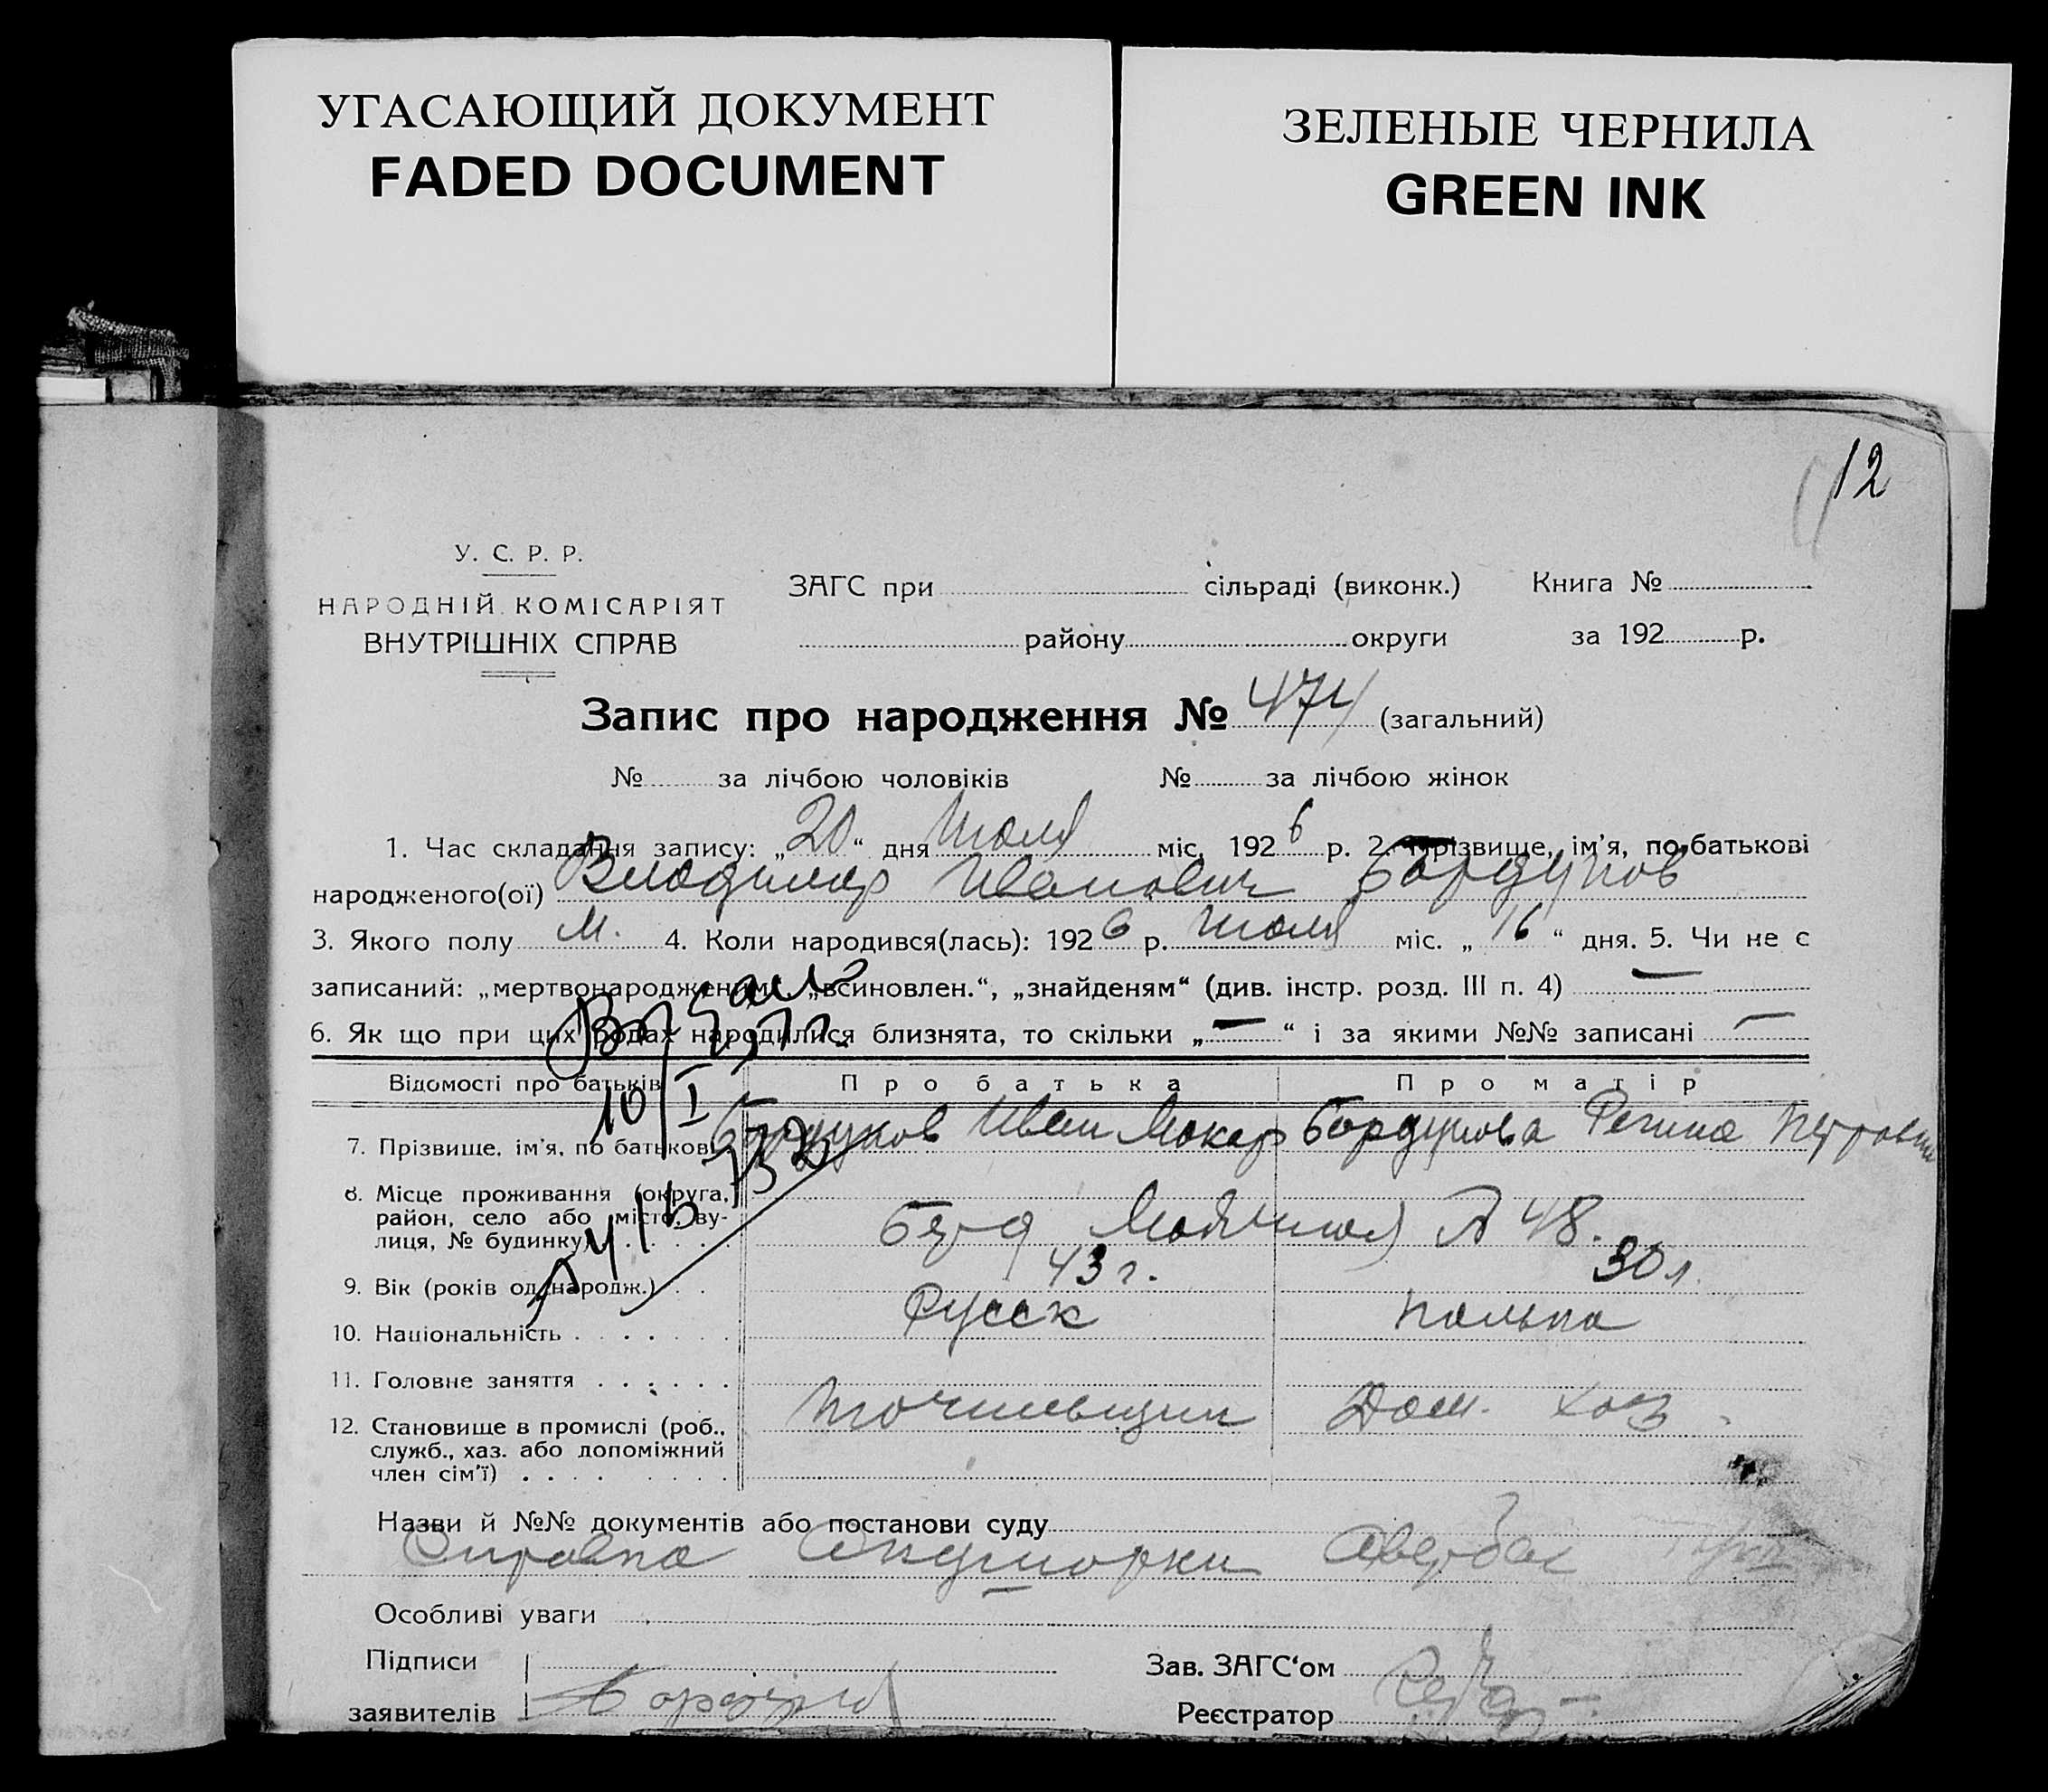 УГАСАЮЩИЙ ДОКУМЕНТ
FADED DOCUMENT
ЗЕЛЕНЫЕ ЧЕРНИЛА
GREEN INK
12
У. С. Р. Р.
НАРОДНІЙ КОМІСАРІЯТ
ВНУТРІШНІХ СПРАВ
ЗАГС при сільраді (виконк.) Книга №
району округи за 192 р.
Запис про народження № 474 (загальний)
№ за лічбою чоловіків № за лічбою жінок
1. Час складання запису: „20“ дня Июля міс. 1926 р. 2. Прізвище, ім'я, по батькові
народженого(ої) Владимир Иванович Бордунов
3. Якого полу М. 4. Коли народився(лась): 1926 р. Июля міс. „16“ дня. 5. Чи не є
записаний: „мертвонародженим“, „всиновлен.“, „знайденям“ (див. інстр. розд. III п. 4) —
6. Як що при цих родах народилися близнята, то скільки „—“ і за якими №№ записані —
Відомості про батьків Про батька Про матір
7. Прізвище, ім'я, по батькові Бордунов Иван Макар Бордунова Регина Петровна
8. Місце проживання (округа,
район, село або місто, ву-
лиця, № будинку) № 48.
9. Вік (років од народж.) 43 г. 30 л.
10. Національність Русск Полька
11. Головне заняття
Точильщик Дом. хоз.
12. Становище в промислі (роб.,
служб., хаз. або допоміжний
член сім'ї)
10/I
Назви й №№ документів або постанови суду
Справка Акушорки Авербах
Особливі уваги
Підписи
заявителів Бордунов
Зав. ЗАГС‘ом
Реєстратор